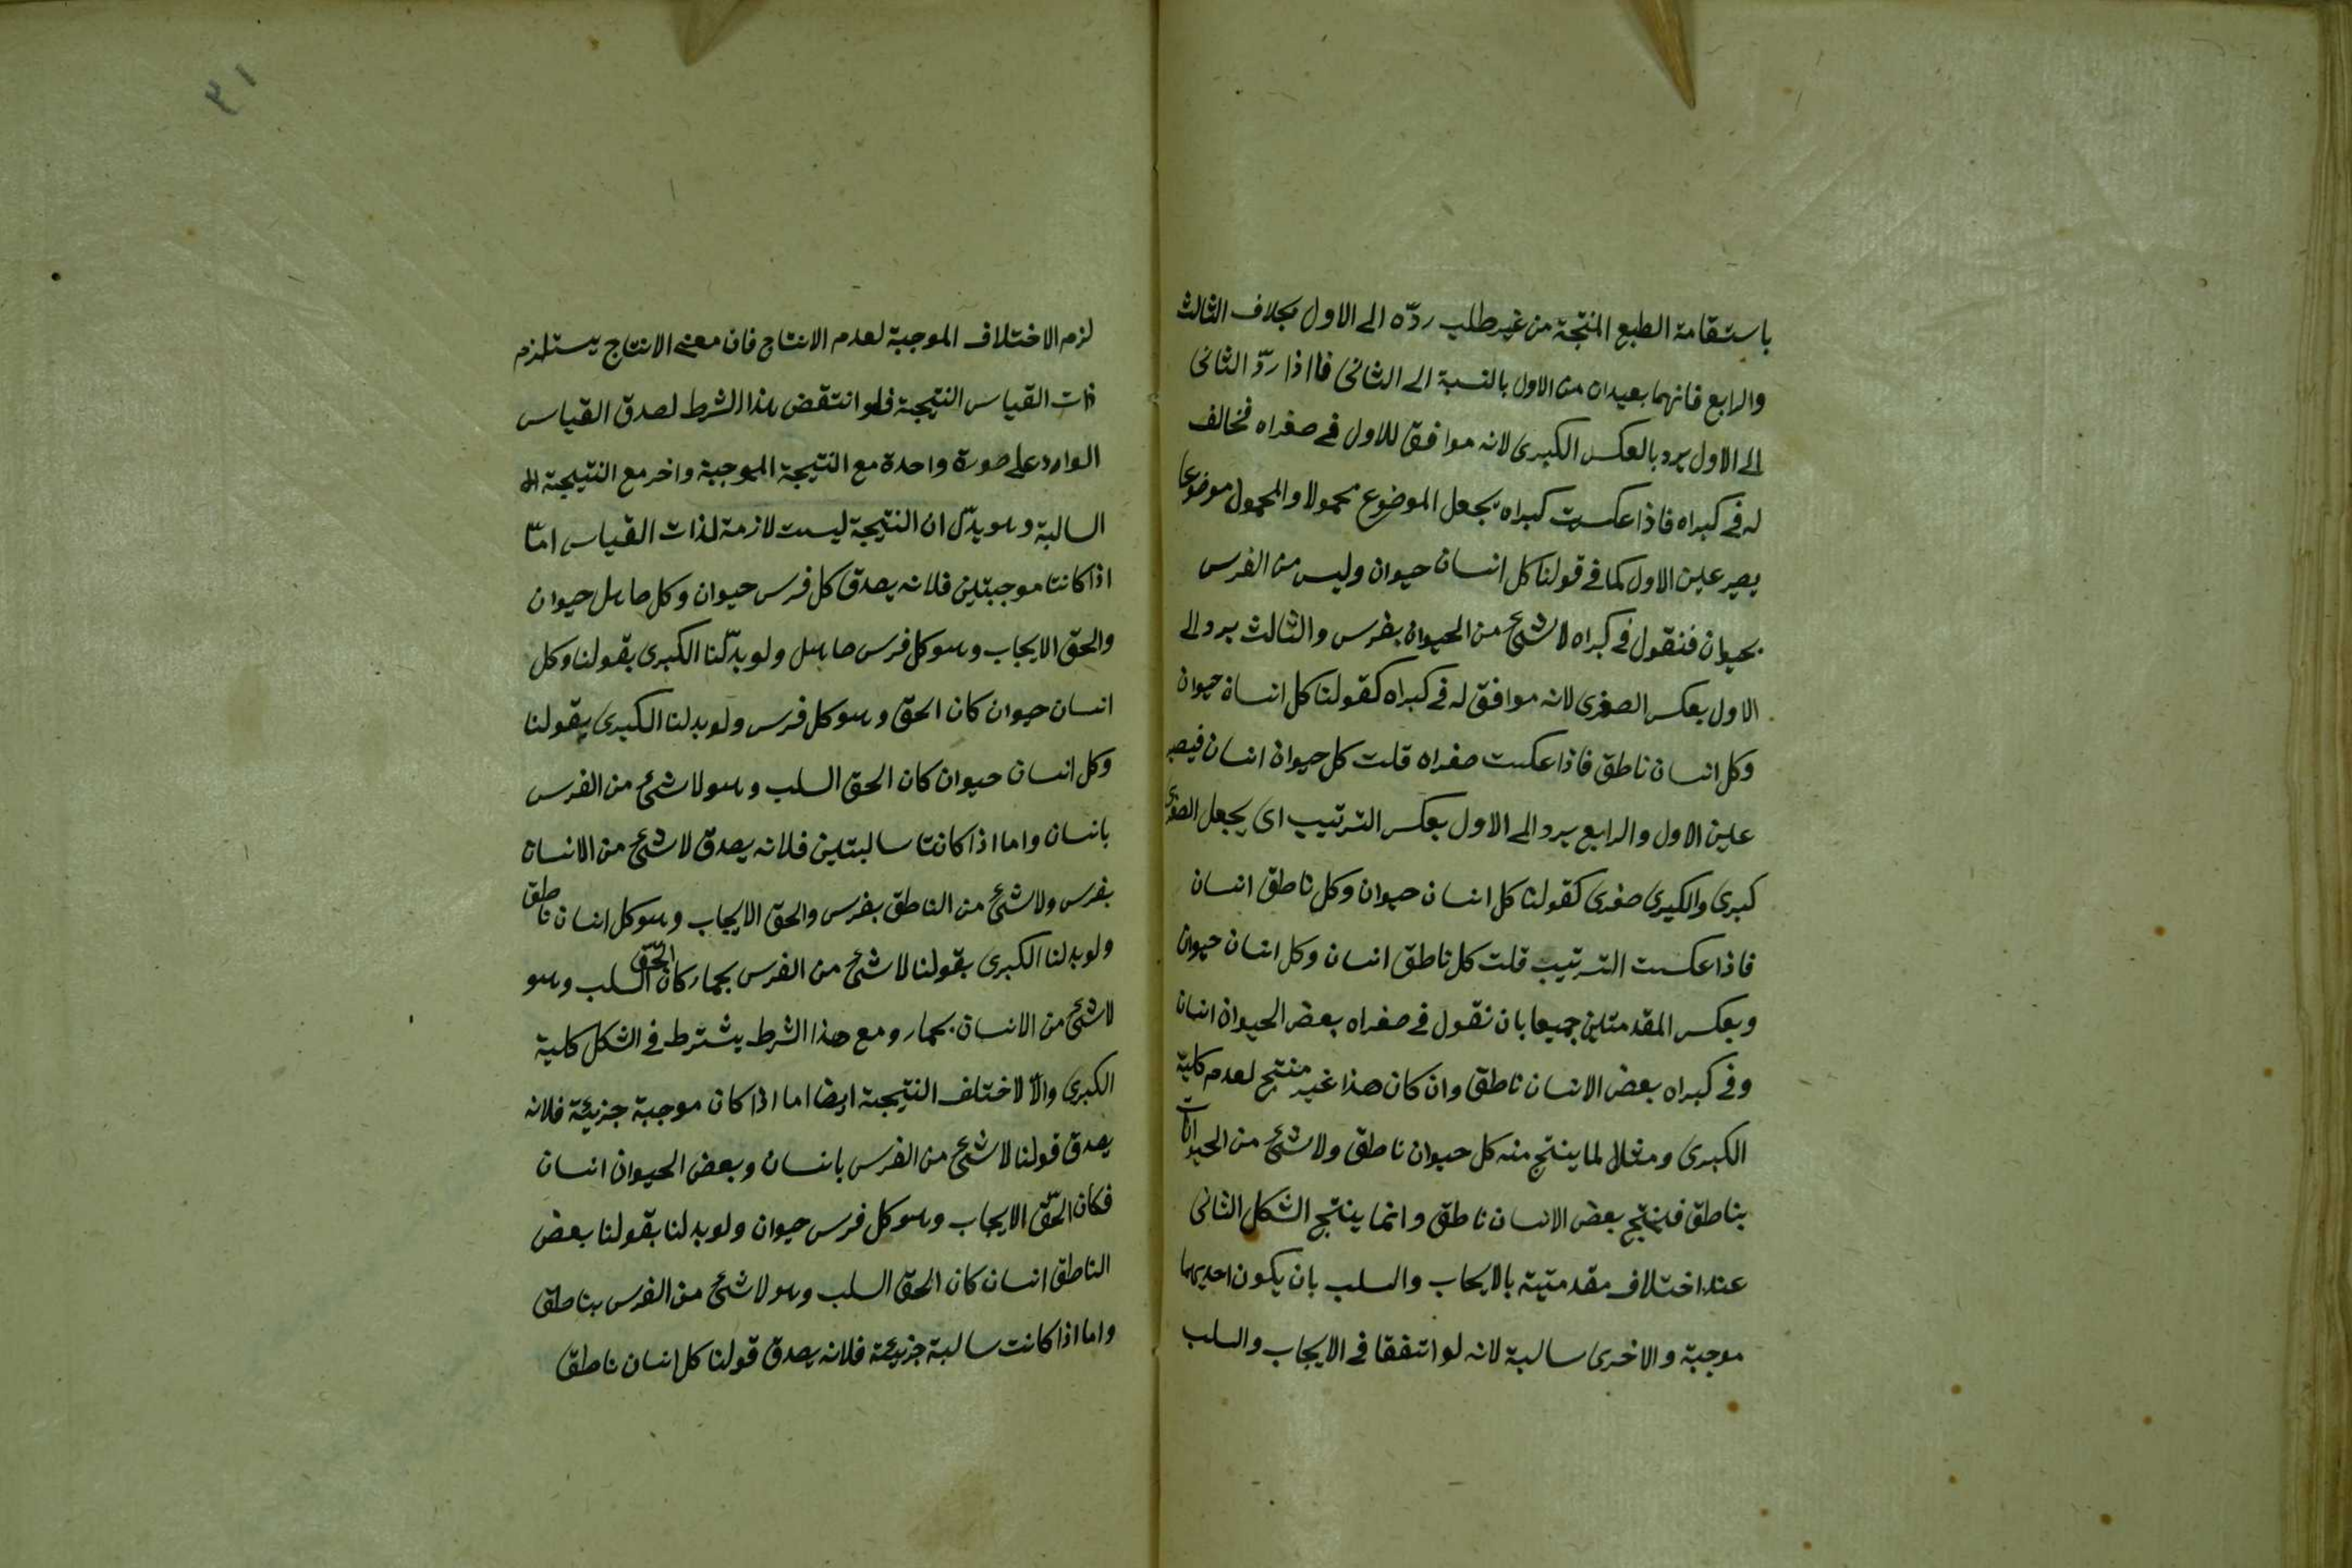 باستقامة الطبع المنتجة من غير طلب ردّه الى الاول بخلاف الثالث
والرابع فانهما بعيدان من الاول بالنسبة الى الثانى فاذا ردّ الثانى
الى الاول يرد بالعكس الكبرى لانه موافق للاول فى صغراه فخالف
له فى كبراه فاذا عكست كبراه بجعل الموضوع محمولا والمحمول موضوعا
يصير عين الاول كما فى قولنا كل انسان حيوان وليس من الفرس
بحيوان فنقول فى كبراه لا شئ من الحيوان بفرس والثالث يرد الى
الاول بعكس الصغرى لانه موافق له فى كبراه كقولنا كل انسان حيوان
وكل انسان ناطق فاذا عكست صغراه قلت كل حيوان انسان فيصير
عين الاول والرابع يرد الى الاول بعكس الترتيب اى يجعل الصغرى
كبرى والكبرى صغرى كقولنا كل انسان حيوان وكل ناطق انسان
فاذا عكست الترتيب قلت كل ناطق انسان وكل انسان حيوان
وبعكس المقدمتين جميعا بان نقول فى صغراه بعض الحيوان انسان
وفى كبراه بعض الانسان ناطق وان كان هذا غير منتج لعدم كلية
الكبرى ومثال لما ينتج منه كل حيوان ناطق ولا شئ من الحيوانات
بناطق فينتج بعض الانسان ناطق وانما ينتج الشكل الثانى
عند اختلاف مقدمتيه بالايجاب والسلب بان يكون احديهما
موجبة والاخرى سالبة لانه لو اتفقا فى الايجاب والسلب
٣١
لزم الاختلاف الموجبة لعدم الانتاج فان معنى الانتاج يستلزم
ذات القياس النتيجة فلو انتقض هذا الشرط لصدق القياس
الوارد على صورة واحدة مع النتيجة الموجبة واخر مع النتيجة
السالبة وهو يدّل ان النتيجة ليست لازمة لذات القياس امّا
اذا كانتا موجبتين فلانه يصدق كل فرس حيوان وكل صاهل حيوان
والحق الايجاب وهو كل فرس صاهل ولو بدّلنا الكبرى بقولنا وكل
انسان حيوان كان الحق وهو كل فرس ولو بدلنا الكبرى بقولنا
وكل انسان حيوان كان الحق السلب وهو لا شئ من الفرس
بانسان واما اذا كانتا سالبتين فلانه يصدق لا شئ من الانسان
بفرس ولا شئ من الناطق بفرس والحق الايجاب وهو كل انسان ناطق
ولو بدلنا الكبرى بقولنا لا شئ من الفرس بحمار كان الحّق السلب وهو
لا شئ من الانسان بحمار ومع هذا الشرط يشترط فى الشكل كلية
الكبرى والّا لاختلف النتيجة ايضا اما اذا كان موجبة جزئية فلانه
يصدق قولنا لا شئ من الفرس بانسان وبعض الحيوان انسان
فكان الحّق الايجاب وهو كل فرس حيوان ولو بدلنا بقولنا بعض
الناطق انسان كان الحق السلب وهو لا شئ من الفرس بناطق
واما اذا كانت سالبة جزئية فلانه يصدق قولنا كل انسان ناطق